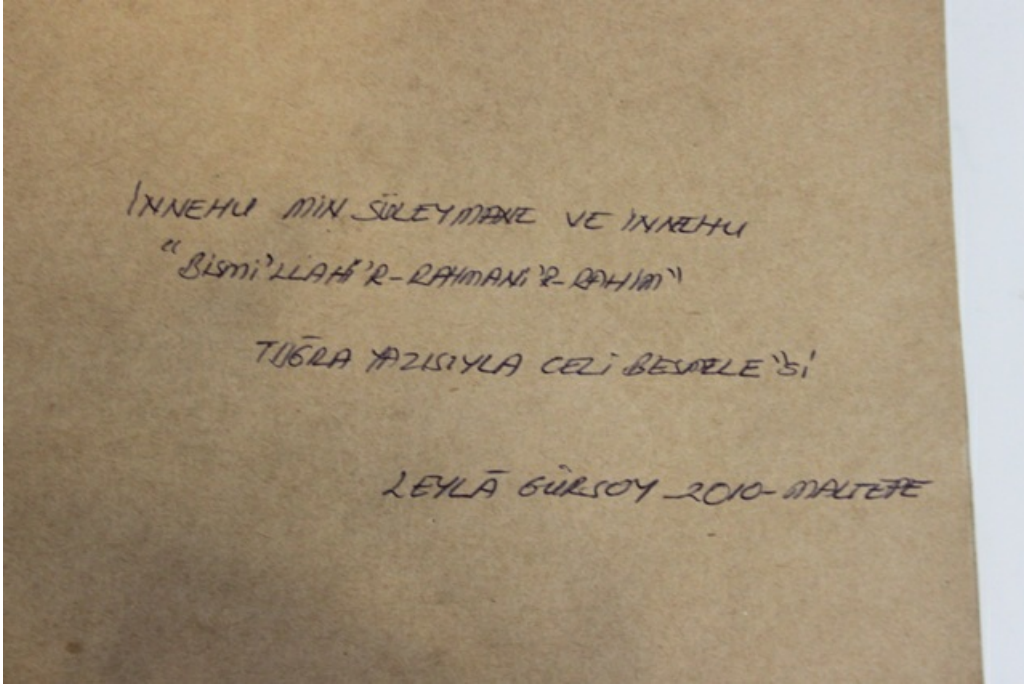 İNNEHU MİN SÜLEYMANE VE İNNEHU
"BİSMİ'LLAHİ'R-RAHMANİ'R-RAHİM"
TUĞRA YAZISIYLA CELİ BESMELE'Sİ
LEYLÂ GÜRSOY 2010-MALTEPE